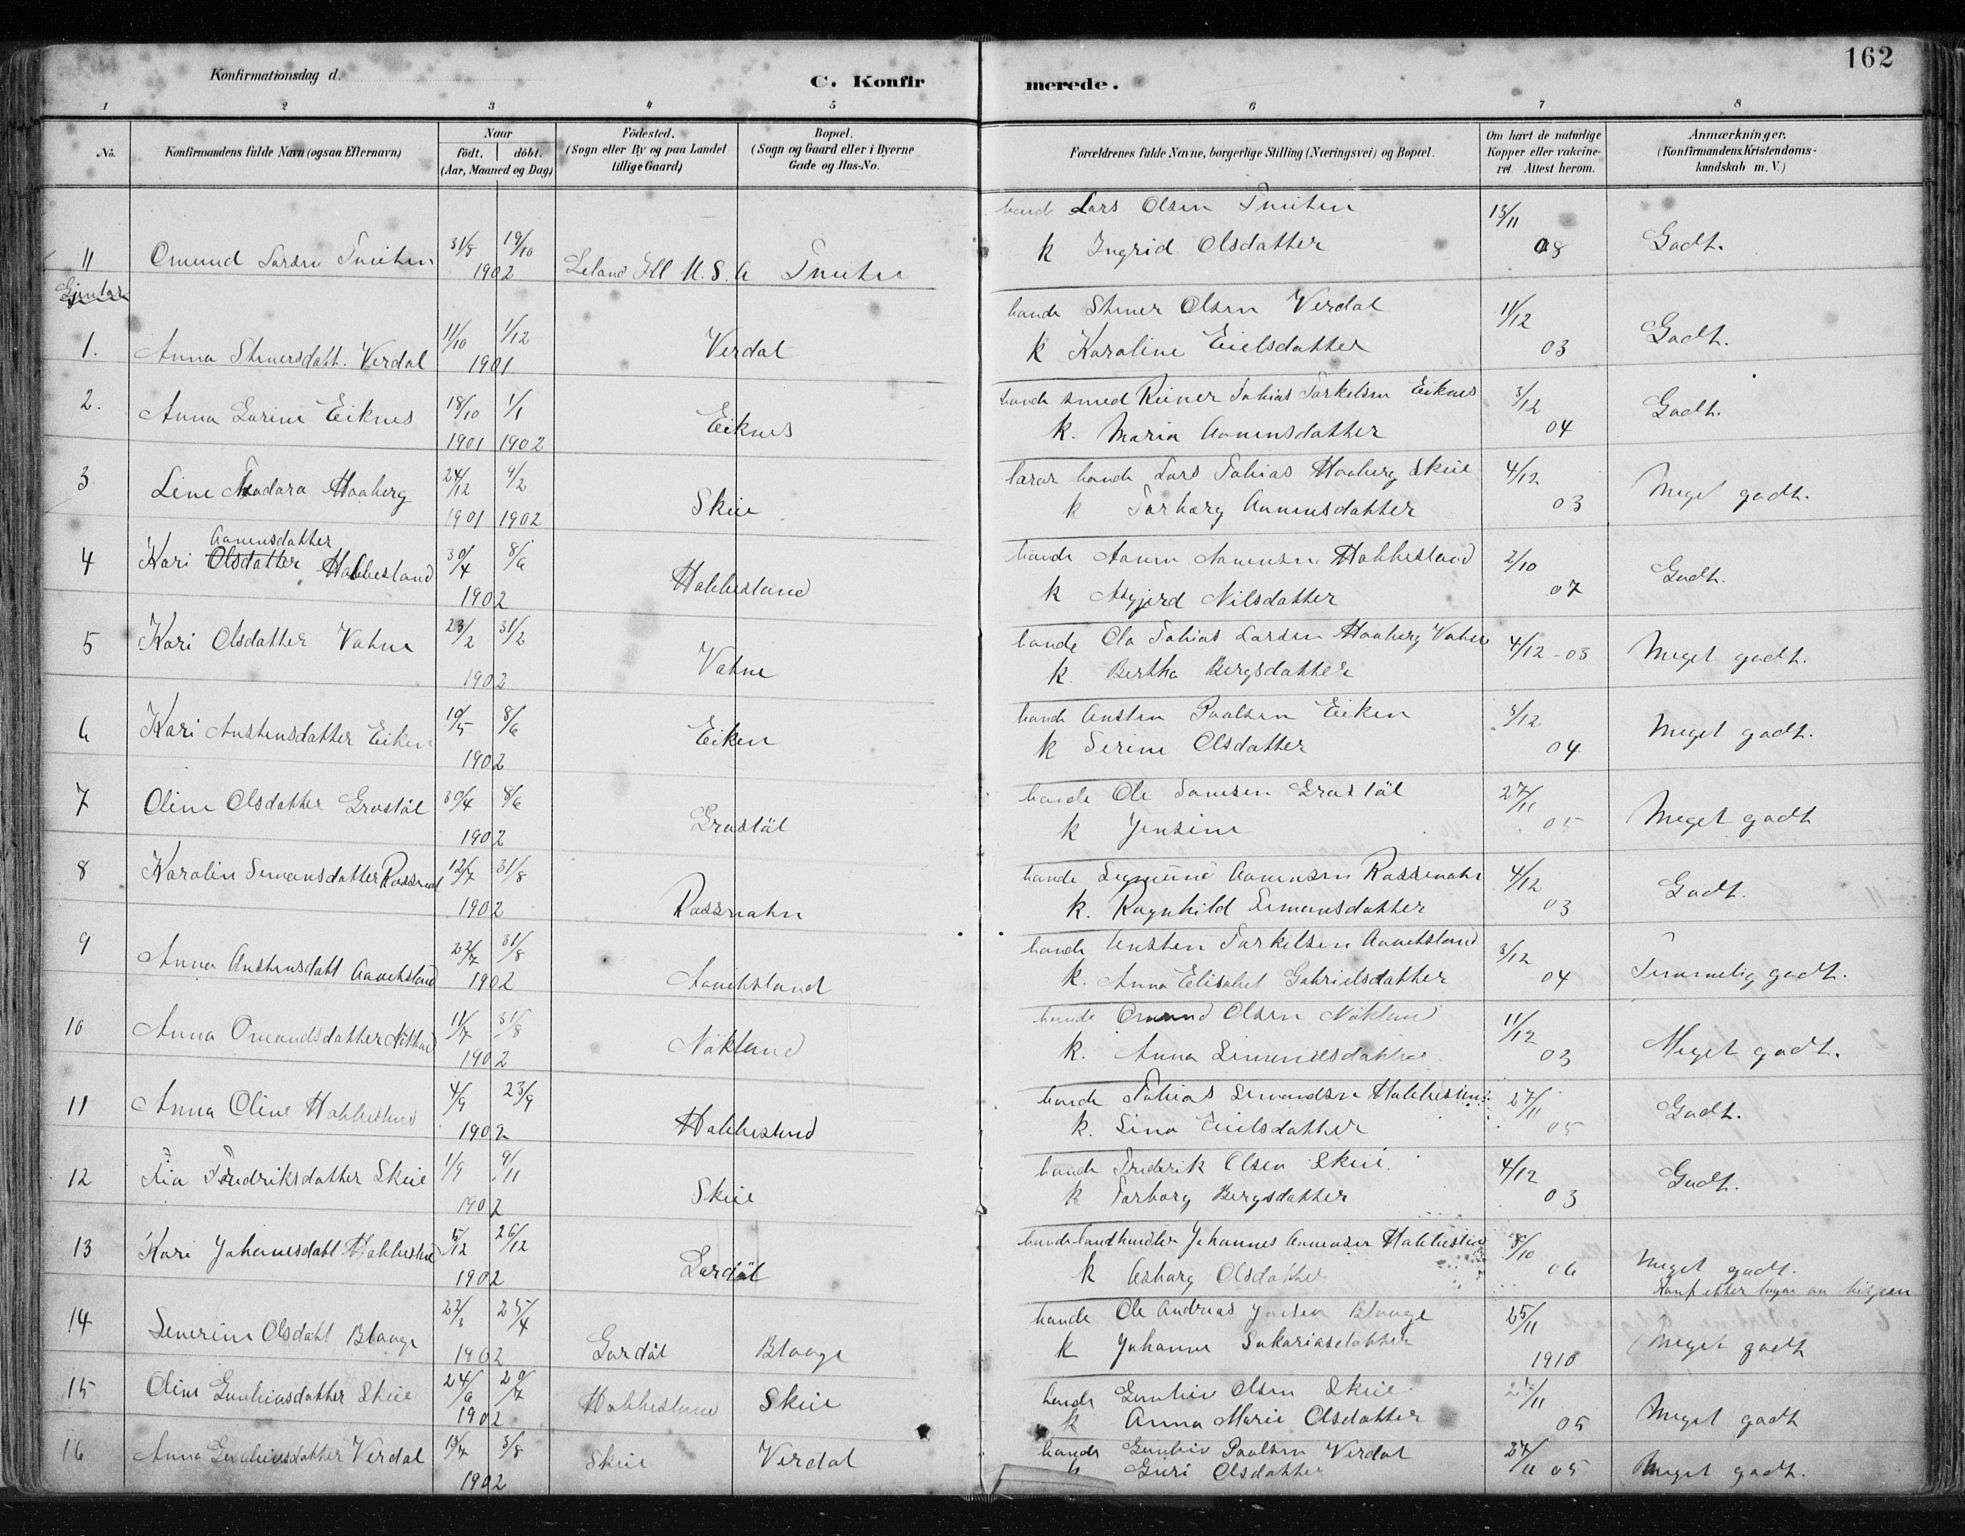 162
Konfirmationsdag d.
C. Konfirmerede.
1 2 3 4 5 6 7 8
No. Konfirmandens fulde Navn (ogsaa Efternavn) Naar födt. döbt. (Aar, Maaned og Dag) Födested. (Sogn eller By og paa Landet tillige Gaard) Bopæl. (Sogn og Gaard eller i Byerne Gade og Hus-No. Forældrenes fulde Navne, borgerlige Stilling (Næringsvei) og Bopæl. Om havt de naturlige Kopper eller vakcineret. Attest herom. Anmærkninger. (Konfirmandens Kristendomskundskab m. V.)
bonde Lars Olsen Tveiten 13/11
11 Omund Larsen Tveiten 31/8 19/10 1902 Leland Ill U. S. A Tveiten k Ingrid Olsdatter 08 Godt.
Gjentar
bonde Steiner Olsen Verdal 11/12
1. Anna Steinersdatt. Verdal 11/10 1/12 1901 Verdal k Karoline Eielsdatter 03 Godt.
bonde smed Reiner Tobias Torkelsen Eiknes 3/12
2. Anna Larine Eiknes 18/10 1/1 1901 1902 Eiknes k. Maria Aanensdatter 04 Godt.
lærar bonde Lars Tobias Haaberg Skeie 4/12
3 Line Teodora Haaberg 24/12 4/2 1901 1902 Skeie k Torborg Aanensdatter 03 Meget godt.
Aanensdatter
bonde Aanen Aanensen Habbestad 2/10
4 Kari Olsdatter Habbestad 30/4 8/6 1902 Habbestad k Asgjerd Nilsdatter 07 Godt.
bonde Ola Tobias Larsen Haaberg Vatne 4/12 - 03
5 Kari Olsdatter Vatne 23/2 31/2 1902 Vatne k. Bertha Bergsdatter Meget godt.
bonde Ansten Paalsen Eiken 3/12
6 Kari Anstensdatter Eiken 10/5 8/6 1902 Eiken k Serine Olsdatter 04 Meget godt.
bonde Ole Tomsen Grastöl 27/11
7 Oline Olsdatter Grastöl 30/4 8/6 1902 Grastöl k Jensine 05 Meget godt
bonde Sigmund Aanensen Rossevatn 4/12
8 Karolin Simonsdatter 12/7 31/8 1902 Rossevatn k. Ragnhild Simonsdatter 03 Godt.
bonde Ansten Torkelsen Aavitsland 3/12
9 Anna Anstensdatt Aavitsland 22/7 31/8 1902 Aavitsland k. Anna Elisabet Gabrielsdatter 04 Temmelig godt.
bonde Omund Olsen Nökland 11/12
10 Anna Omundsdatter Nökland 11/7 31/8 1902 Nökland k. Anna Simundsdatter 03 Meget godt.
bonde Tobias Simundsen Habbestad 27/11
11 Anna Oline Habbestad 4/9 23/9 1902 Habbestad k. Lina Eielsdatter 05 Godt.
bonde Frederik Olsen Skeie. 4/12
12 Tia Fredriksdatter Skeie 1/9 9/11 1902 Skeie k Torborg Bergsdatter 03 Godt.
bonde landhandler Johannes Aanensen Habbestad 8/10
13 Kari Johannesdatt Habbestad 5/12 26/12 1902 k Asborg Olsdatter 06 Meget godt.
bonde Ole Andreas Jonsen Blaage 25/11
14 Severine Olsdatt Blaage 22/3 25/4 1902 Gardöl Blaage k Johanne Sakariasdatter 1910 Meget godt
bonde Gunbiør Olsen Skeie /11
15 Oline Skeie 24/6 20/7 1902 Habbestad Skeie k Anna Marie Olsdatter 05 Meget godt
bonde Paalsen Verdal 27/11 05
16 Anna Verdal 13/7 3/8 1902 Skeie Verdal k Guri Olsdatter Meget godt.